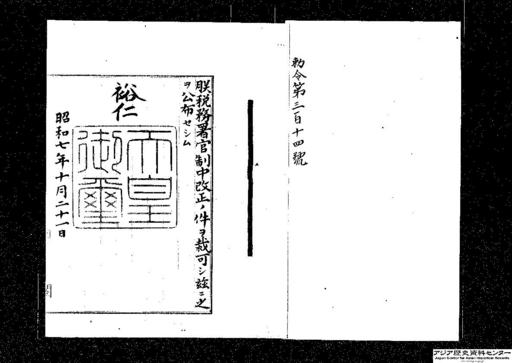 勅令第三百十四號
朕税務署官制中改正ノ件ヲ裁可シ玆ニ之
ヲ公布セシム
裕仁
天皇
御璽
昭和七年十月二十一日
アジア歴史資料センター
Japan Center for Asian Historical Records